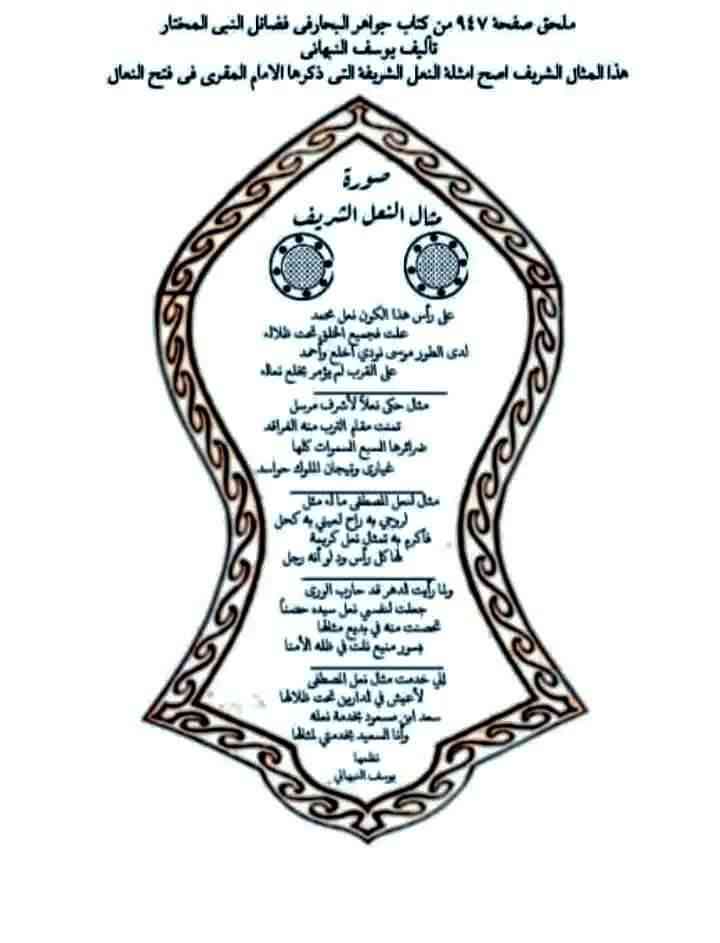 ملحق صفحة ٩٤٧ من كتاب جواهر البحارفى فضائل النبى المختار
تأليف يوسف النبهانى
هذا المثال الشريف اصح امثلة النعل الشريفة التى ذكرها الامام المقرى فى فتح النعال
صورة
مثال النعل الشريف
على رأس هذا الكون نعل محمد
علت فجميع الخلق تحت ظلاله
لدى الطور موسى نودي اخلع وأحمد
على القرب لم يؤمر بخلع نعاله
مثال حكى نعلاً لأشرف مرسل
تمنت مقام الترب منه الفراقد
ضرائرها السبع السموات كلها
غيارى وتيجان الملوك حواسد
مثال لنعل المصطفى ما له مثل
لروحي به راح لعيني به كحل
فأكرم به تمثال نعل كريمة
لها كل رأس ود لو أنه رجل
ولما رأيت الدهر قد حارب الورى
جعلت لنفسي نعل سيده حصناً
تحصنت منه في بديع مثالها
بسور منيع نلت في ظله الأمنا
إني خدمت مثال نعل المصطفى
لأعيش في الدارين تحت ظلالها
سعد ابن مسعود بخدمة نعله
وأنا السعيد بخدمتي لمثالها
نظمها
يوسف النبهاني